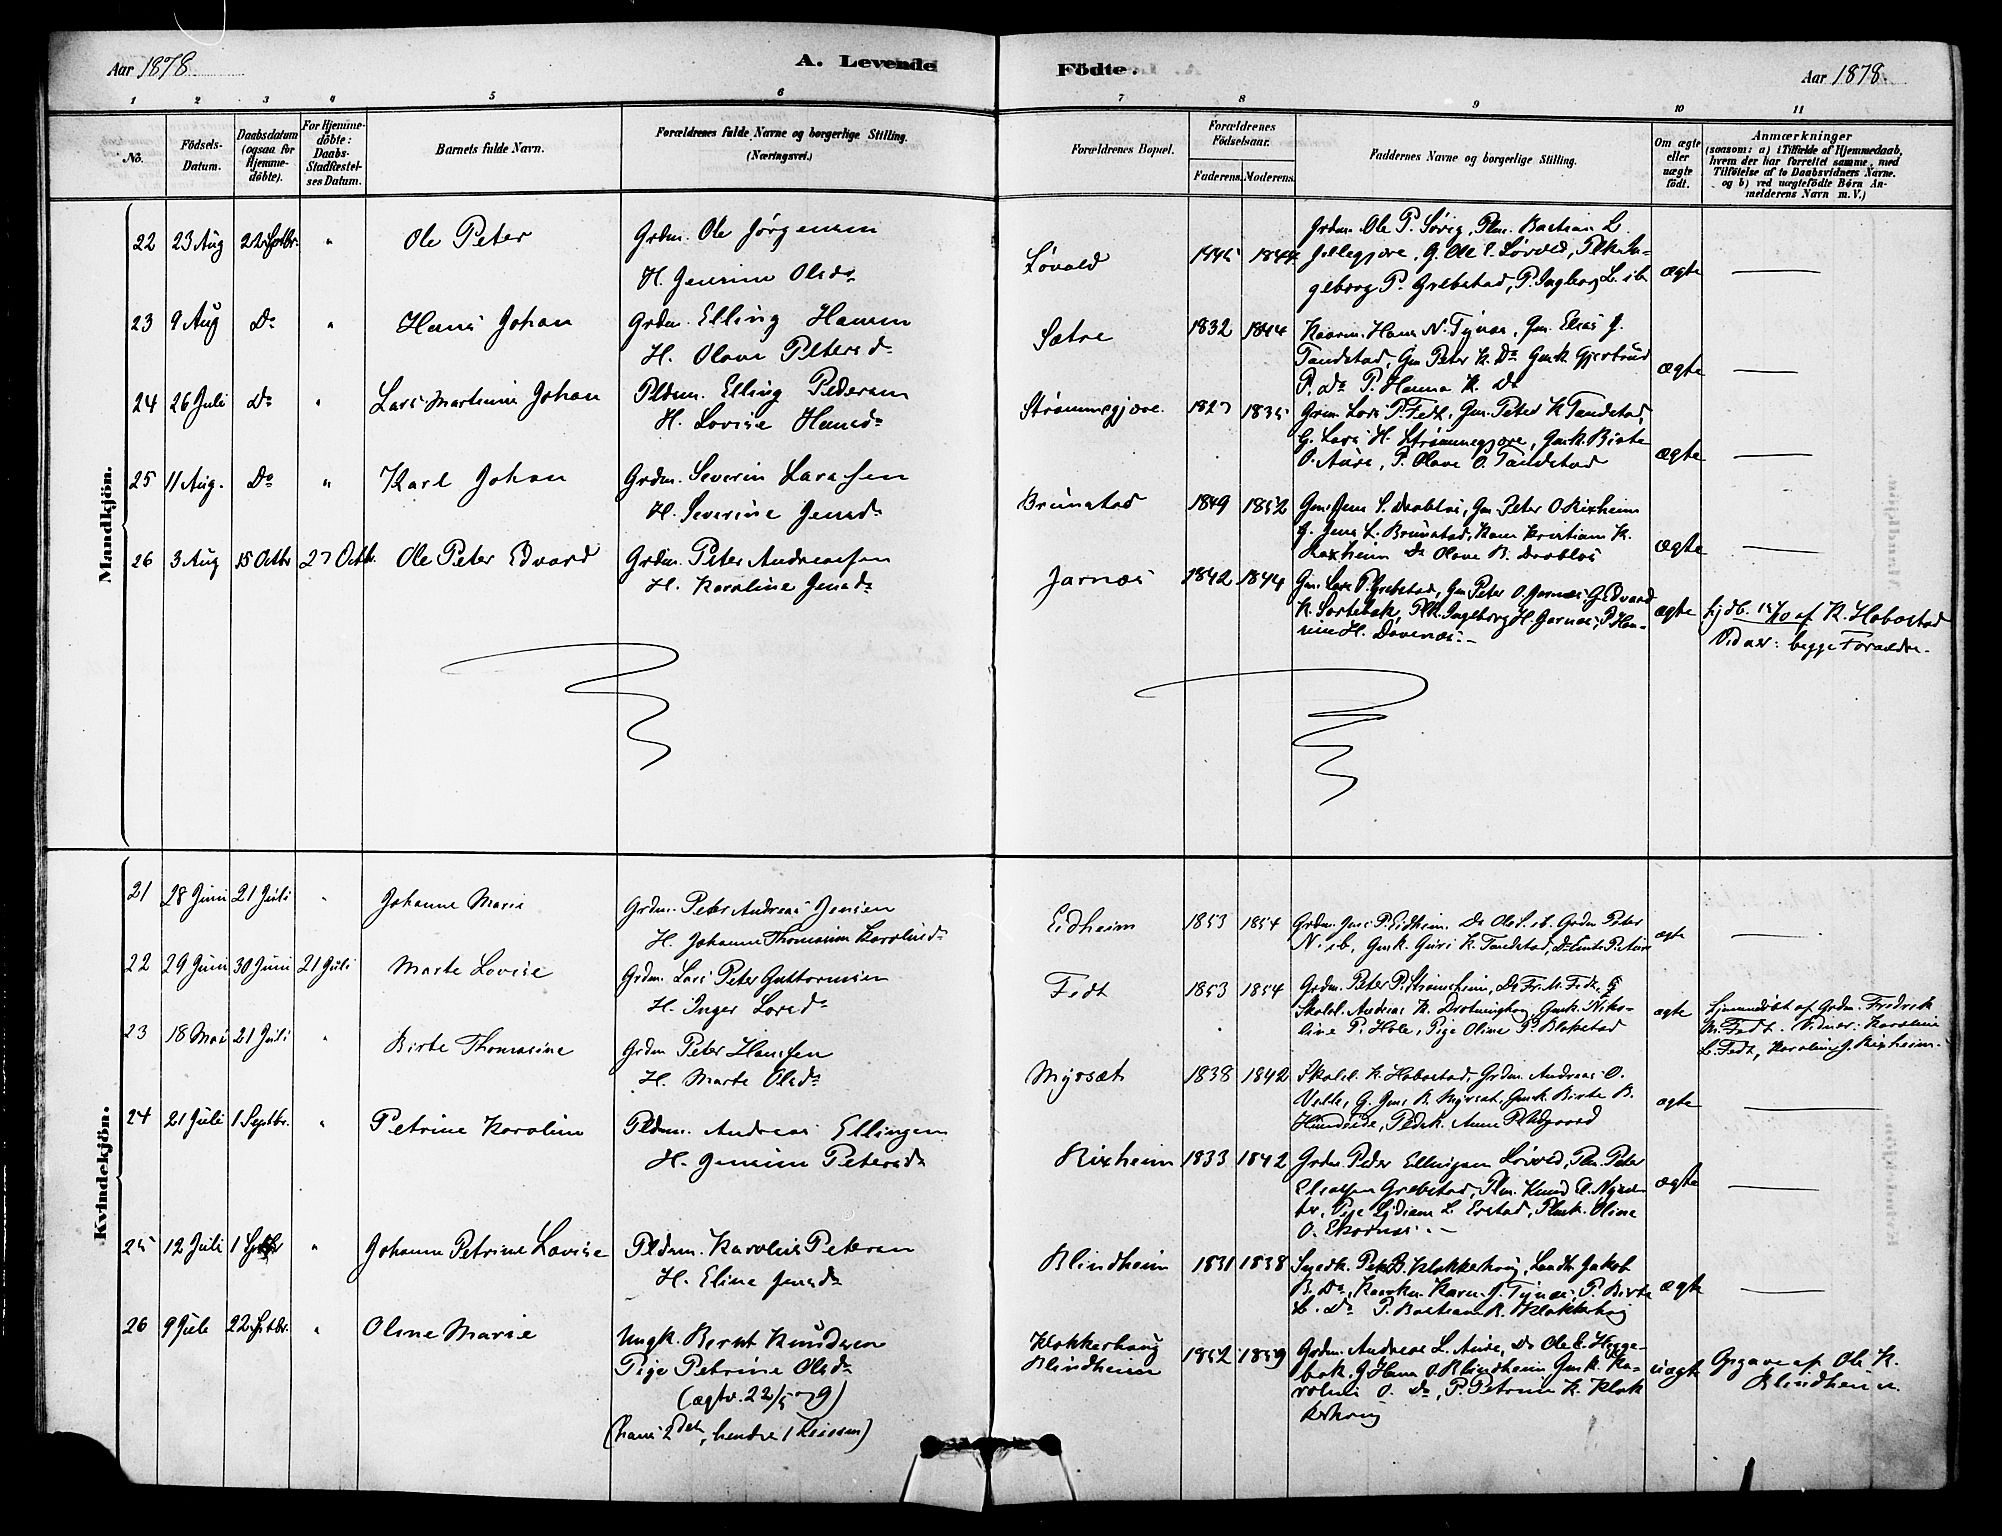 Aar 1878. A. Levende Födte. Aar 1878.
1 2 3 4 5 6 7 8 9 10 11
No.
Födsels-Datum.
Daabsdatum (ogsaa for Hjemme-döbte).
For Hjemme-döbte: Daabs-Stadfæstel-ses Datum.
Barnets fulde Navn.
Forældrenes fulde Navne og borgerlige Stilling.
(Næringsvei.)
Forældrenes Bopæl.
Forældrenes Födselsaar.
Faderens. Moderens.
Faddernes Navne og borgerlige Stilling.
Om ægte eller uægte födt.
Anmærkninger
(saasom: a) i Tilfælde af Hjemmedaab,
hvem der har forrettet samme, med
Tilföielse af to Daabsvidners Navne.
og b) ved uægtefödte Børn An-
melderens Navn m. V.)
Mandkjön.
22 23 Aug 22 Sptbr. " Ole Peter Grdm. Ole Jörgensen
H. Jensine Olsdr
Løvold 1845 1844
Grdm. Ole P. Sørig, Plm. Bastian L.
G. Ole E. Løvold,
geborg P. Grebstad, P. Ingborg L. ib.
ægte
23 9 Aug Do " Hans Johan Grdm. Elling Hansen
H. Olave Petersdr
Sætre 1832 1844
Hans N. Tynæs, Gm. Elias J.
Tandstad, Gm Peter K. Do Gmk Gjertrud
P. Do P. Hanna K. Do
ægte
24 26 Juli Do " Lars Martinus Johan Pldm. Elling Pedersen
H. Lovise Hansdr
Strømmegjære. 1827 1835
Grdm. Lars P. Fedt, Gm. Peter K Tandstad,
G. Lars H. Strømmegjære, Gmk. Birte
O. Aure, P. Olave O. Tandstad
ægte
25 11 Aug. Do " Karl Johan Grdm. Severin Larssen
H. Severine Jensdr
Brunstad 1849 1852
Gm. Jens S. Drabløs, Gm Peter O Rixheim
G. Jens L. Brunstad, Kristian K.
Do Olave B. Drabløs
ægte
26 3 Aug 15 Octbr 27 Octbr. Ole Peter Edvard Grdm. Peter Andreassen
H. Karoline Jensdr
Jarnæs 1842 1844
Gm. Lars P. Grebstad, Gm Peter O. Jarnæs, G. Edvard
K. Sortebæk, Plk. Ingeborg H. Jarnæs, P Han-
sine H. Davenæs. —
ægte
hjdb. 15/10 af K. Habostad
Vidner: begge Forældre.
Kvindekjön.
21 28 Juni 21 Juli " Johanne Marie Grdm. Peter Andreas Jensen
H. Johanne Thomasine Karolusdr
Eidheim 1853 1854
Grdm. Jens P. Eidheim, Do Ole S. ib. Grdm Peter
N. ib, Gmk. Guri K. Tandstad,
ægte
22 29 Juni 30 Juni 21 Juli Marte Lovise Grdm. Lars Peter Guttormsen
H. Inger Larsdr
Fedt 1853 1854
Grdm. Peter P. Do Fr. M. Fedt, G
Skolel. Andreas K. Drotninghaug, Gmk. Niko-
line P. Hole, Pige Oline P. Blakstad
ægte
hjemmedöbt af Grdm. Fredrik
M. Fedt. Vidner: Karoline
L. Fedt, Karoline J. Rixheim.
23 18 Mai 21 Juli " Birte Thomasine Grdm Peter Hanssen
H. Marte Olsdr
Myrsæt 1838 1842
Skolel. K. Habostad, Grdm. Andreas O.
Velle, G. Jens R. Myrsæt, Gmk Birte B.
Hundeide, Pldsk. Anne P. Ødegaard
ægte
24 21 Juli 1 Septbr. " Petrine Karoline Pldm. Andreas Ellingsen
H. Jensine Petersdr
Rixheim 1833 1842
Grdm. Peder Ellingsen Løvold, Plm. Peter
Eliassen Grebstad, Plm. Knud E.
Pige Lydiane L. Erstad, Plmk. Oline
O. Ekornæs. —
ægte
25 12 Juli 1 Sptbr " Johanne Petrine Lovise Pldm. Karolus Petersen
H. Eline Jensdr
Blindheim 1831 1838
Peter B. Klokkerhoug, Landh. Jakob
B. Do, Karen J. Tynæs, P. Birte
L. Do P. Bastian R. Klokkerhoug
ægte
26 9 Juli 22 Sptbr. " Oline Marie Ungk. Bernt Knudsen
Pige Petrine Olsdr
(ægtv. 22/5 79)
(hans 2det, hendes 1 Leiersm)
Klokkerhaug
Blindheim
1852 1859
Grdm. Andreas L. Aure, Do Ole E. Hegge-
bak, G Hans O. Blindheim Gmk. Ka-
roline O. Do, P. Petrine K. Klok
kerhoug
uægte
Opgave af Ole K.
Blindheim.